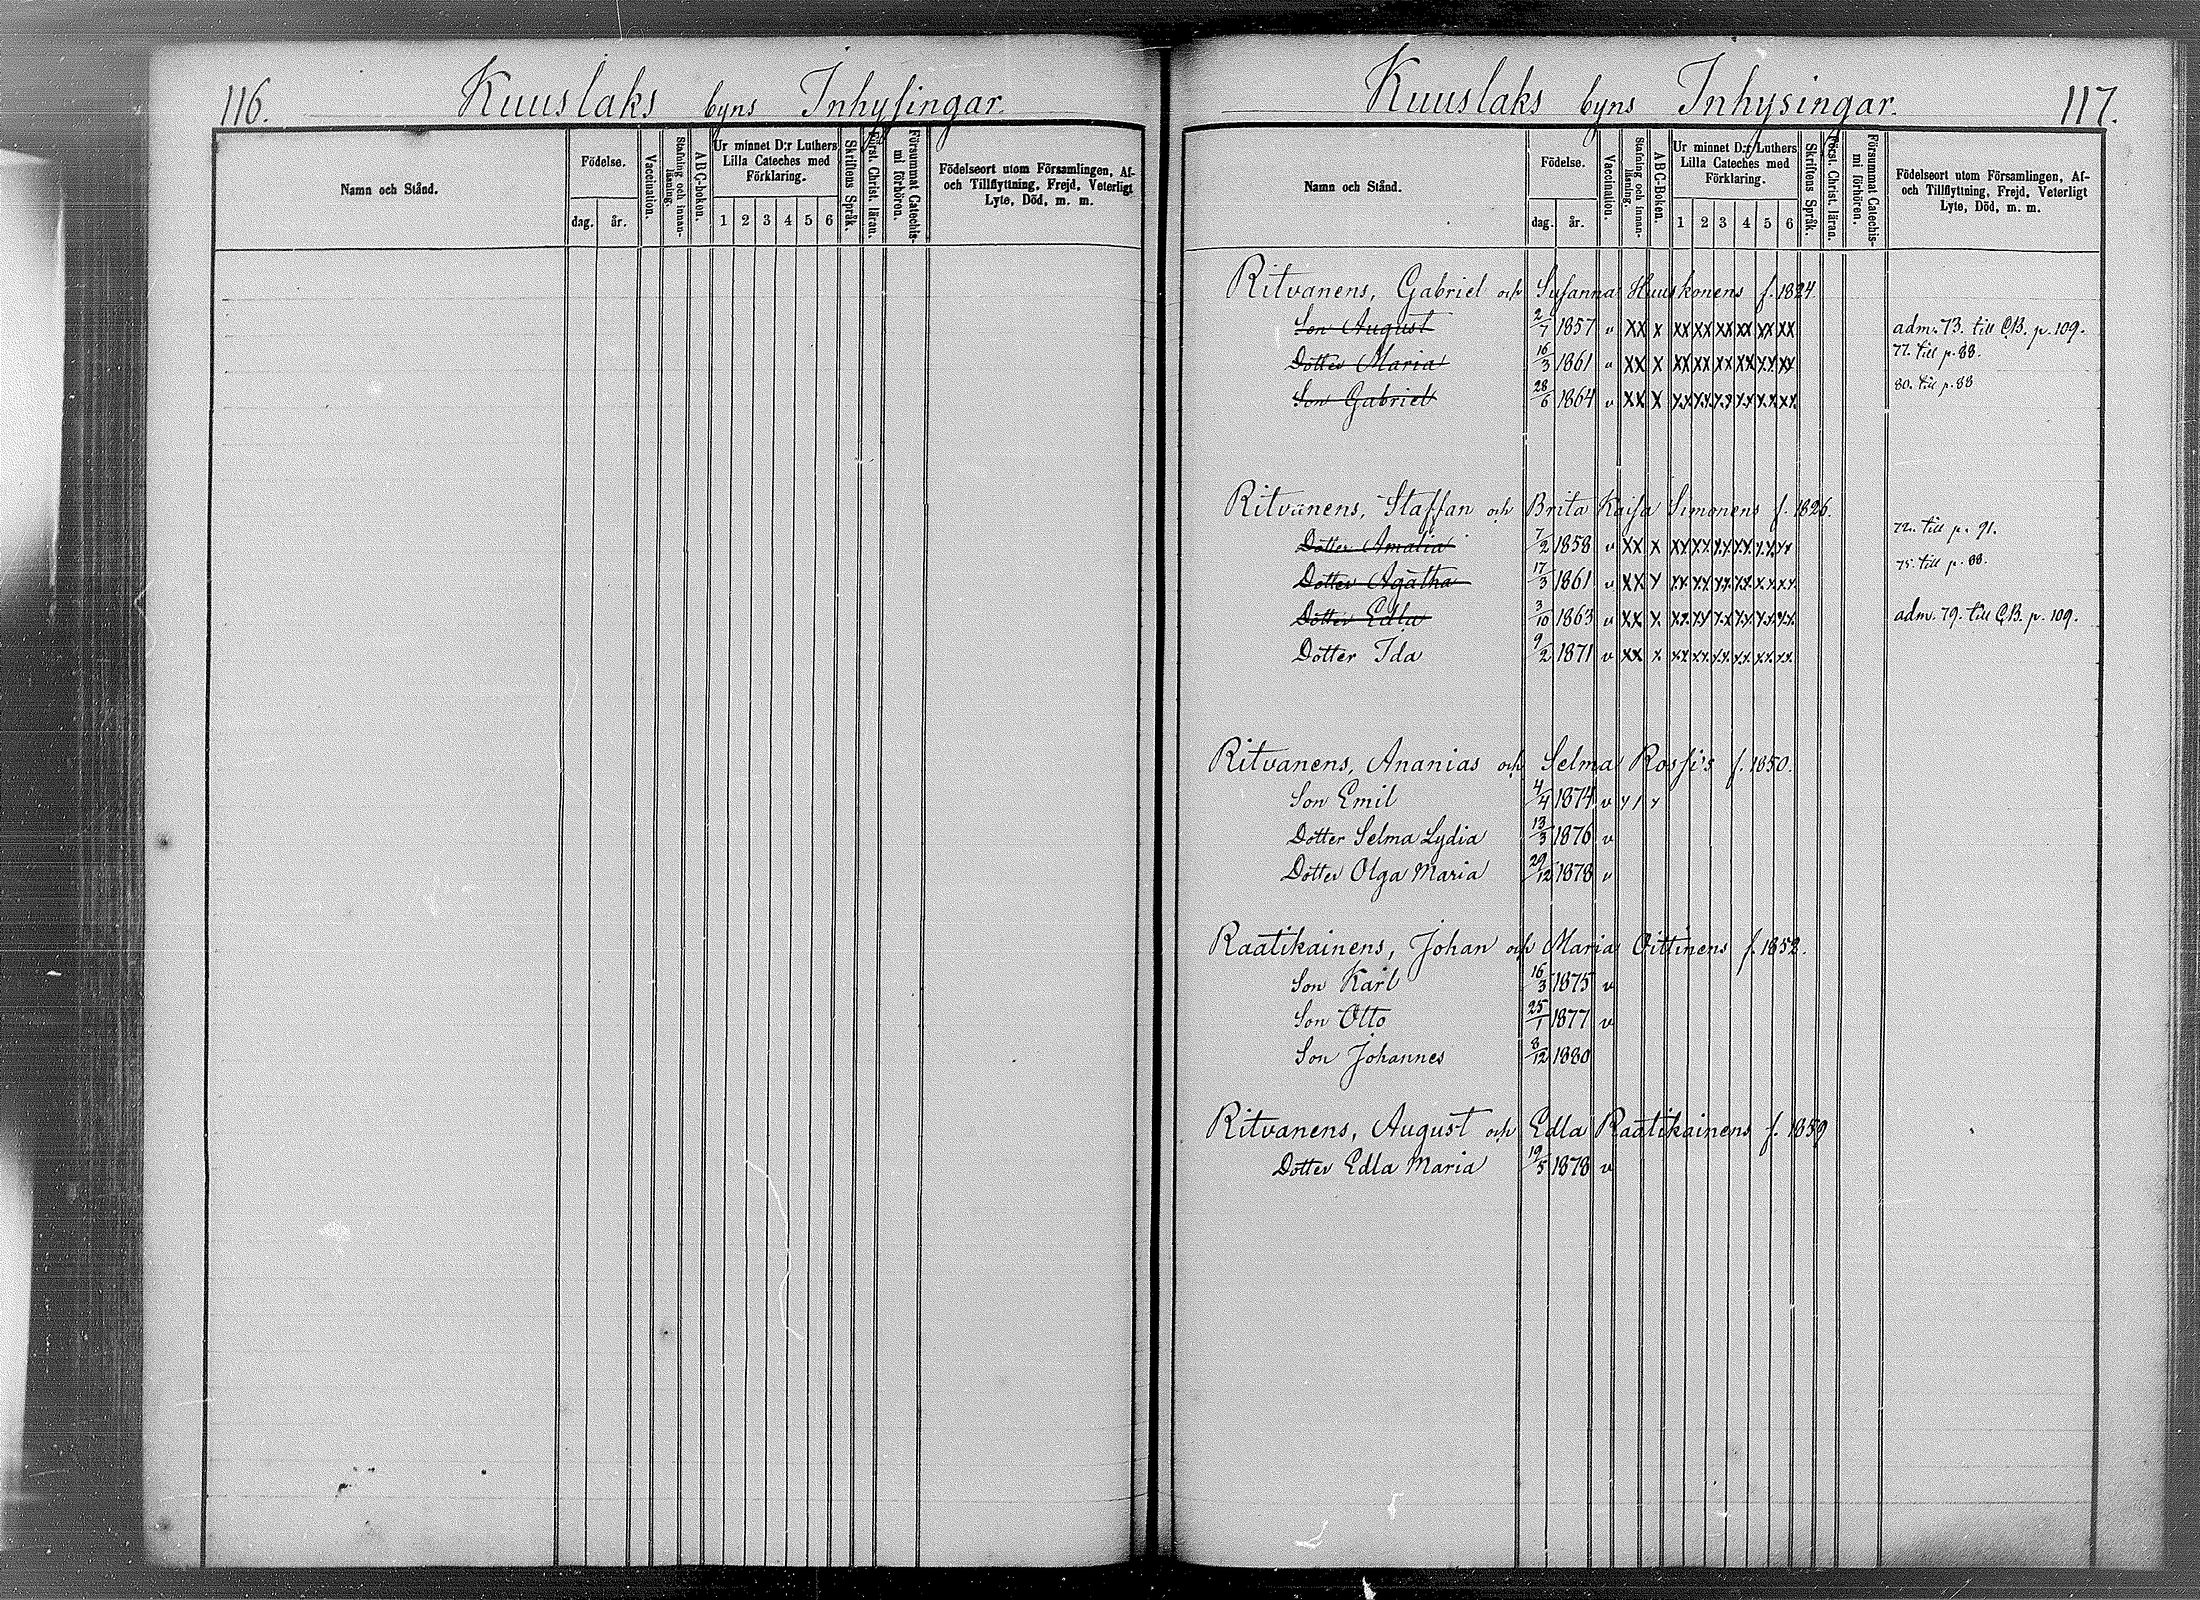 116. Kuuslaks byns Inhysingar.
Namn och Stånd.
Födelse.
dag. år.
Vaccination.
Stafning och innan-
läsning.
ABC-boken.
Ur minnet D:r Luthers
Lilla Cateches med
Förklaring.
1 2 3 4 5 6
Skriftens Språk.
Först. Christ. läran.
Försummat Catechis-
mi förhören.
Födelseort utom Församlingen, Af-
och Tillflyttning, Frejd, Veterligt
Lyte, Död, m. m.
Kuuslaks byns Inhysingar. 117.
Namn och Stånd.
Födelse.
dag. år.
Vaccination.
Stafning och innan-
läsning.
ABC-Boken.
Ur minnet D:r Luthers
Lilla Cateches med
Förklaring.
1 2 3 4 5 6
Skriftens Språk.
Först. Christ. läran.
Försummat Catechis-
mi förhören.
Födelseort utom Församlingen, Af-
och Tillflyttning, Frejd, Veterligt
Lyte, Död, m. m.
Ritvanens, Gabriel och Susanna Huuskonens f. 1824
Son August 2/7 1857 v xx x xx xx xx xx xx xx adm. 73. till C.B. p. 109.
Dotter Maria 16/3 1861 v xx x xx xx xx xx xx xx 77. till p. 88.
Son Gabriel 28/6 1864 v xx x xx xx xx xx xx xx 80. till p. 88
Ritvanens, Staffan och Brita Kaisa Simonens f. 1826.
Dotter Amalia 7/2 1858 v xx x xx xx xx xx xx xx 72. till p. 91.
Dotter Agatha 17/3 1861 v xx x xx xx xx xx xx xx 75. till p. 88.
Dotter Edla 3/10 1863 v xx x xx xx xx xx xx xx adm. 79. till C.B. p. 109.
Dotter Ida 9/2 1871 v xx x xx xx xx xx xx xx
Ritvanens, Ananias och Selma Rossi's f. 1850.
Son Emil 4/4 1874 v x / x
Dotter Selma Lydia 13/3 1876 v
Dotter Olga Maria 29/12 1878 v
Raatikainens, Johan och Maria Oittinens f. 1852.
Son Karl 16/3 1875 v
Son Otto 25/1 1877 v
Son Johannes 8/12 1880
Ritvanens, August och Edla Raatikainens f. 1859
Dotter Edla Maria 19/5 1878 v